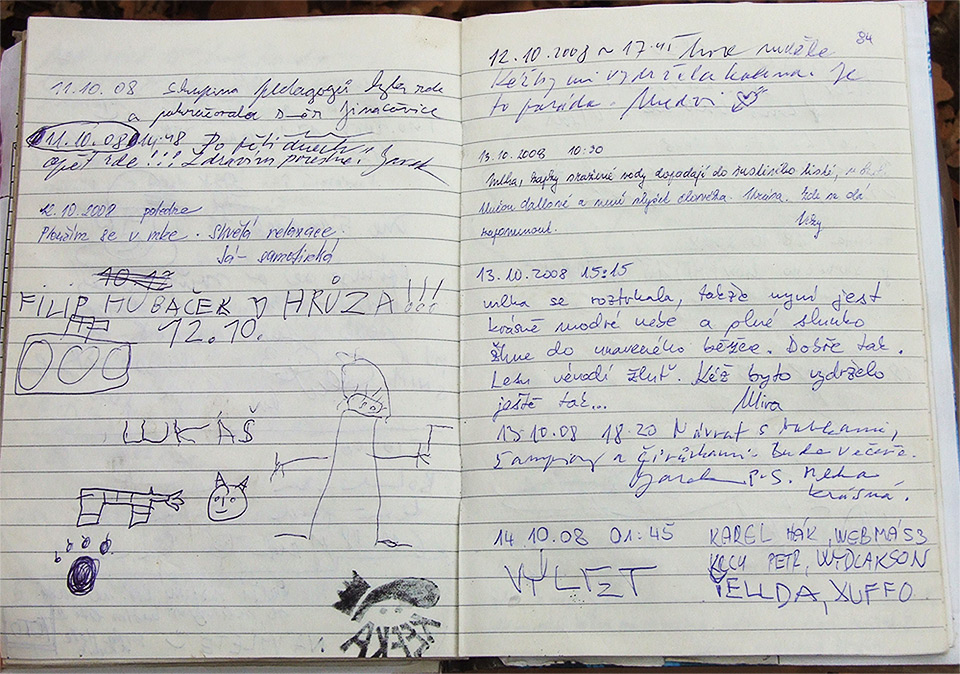 11.10.08 skupina pedagogů byla zde
a pokračovala směr Jinačovice
11.10.08 14.48 Po pěti dnech
opět zde!!! Zdravím pozdně! Jarek
12.10.2008 poledne
Ploužím se v mlze. Skvělá relaxace.
Já - samotinká
10.12
FILIP HUBAČEK HRŮZA!!!
12.10.
LUKÁŠ
84
12.10.2008 ~ 17.45 neděle
Kéžby mi vydržela kolena. Je
to paráda.
13.10.2008 10:30
Mlha, kapky sražené vody dopadají do listí,
a není slyšet človéka. Zde se dá
zapomenout.
13.10.2008 15:15
mlha se roztrhala, takže nyní jest
krásně modré nebe a plné slunko
žhne do unaveného běžce. Dobře tak.
Lesu vévodí žluť. Kéž by to vydrželo
ještě tak... Mira
13.10.08 18.20 Návrat s babkami,
žampiony a čirůvkami. Bude večeře.
Jarek P.S. Mlha
krásná.
14.10.08 01:45 KAREL HÁK, WEBMÁS3
VÝLEZT KUCH PETR, WYDLAKSON
YELLDA, XUFFO